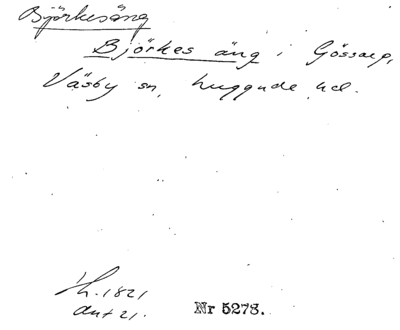 Björkesäng
Björkes äng i Gössarp,
Väsby sn, Luggude hd.
Th. 1821
ant 21.
Nr 5273.